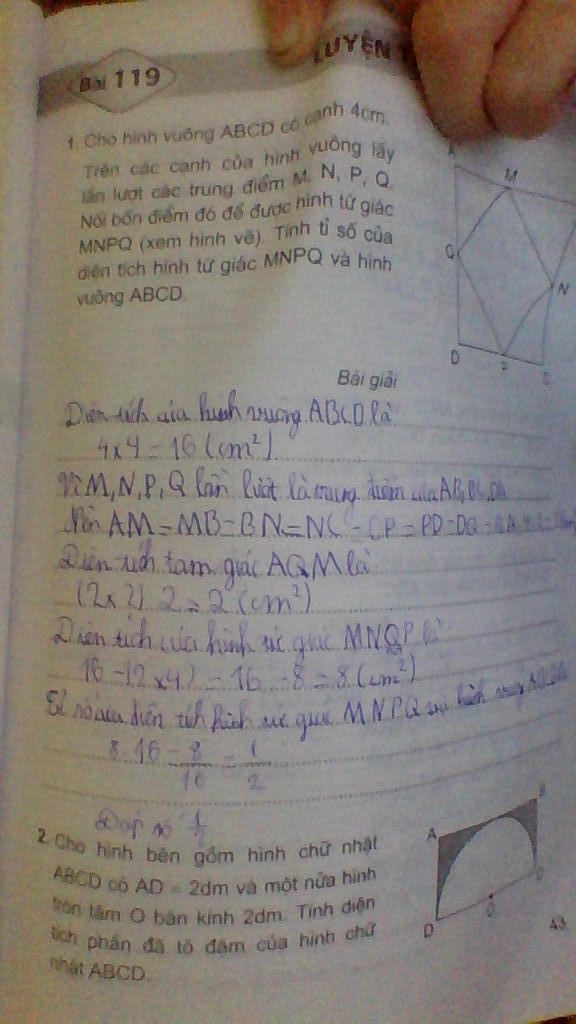 Bài 119
LUYỆN
1. Cho hình vuông ABCD có cạnh 4cm.
Trên các cạnh của hình vuông lấy
lần lượt các trung điểm M, N, P, Q.
Nối bốn điểm đó để được hình tứ giác
MNPQ (xem hình vẽ). Tính tỉ số của
diện tích hình tứ giác MNPQ và hình
vuông ABCD.
A
M
Q
N
D
P
C
Bài giải
Diện tích của hình vuông ABCD là
4 x 4 = 16 (cm²)
Vì M, N, P, Q lần lượt là trung điểm của AB, BC, CD, DA
Nên AM = MB = BN = NC = CP = PD = DQ = QA
Diện tích tam giác AQM là
(2 x 2) : 2 = 2 (cm²)
Diện tích của hình tứ giác MNQP là
16 - (2 x 4) = 16 - 8 = 8 (cm²)
Tỉ số của diện tích hình tứ giác MNPQ và hình vuông ABCD là
8 : 16 = 8/16 = 1/2
Đáp số 1/2
2. Cho hình bên gồm hình chữ nhật
ABCD có AD = 2dm và một nửa hình
tròn tâm O bán kính 2dm. Tính diện
tích phần đã tô đậm của hình chữ
nhật ABCD.
A
B
C
D
O
43